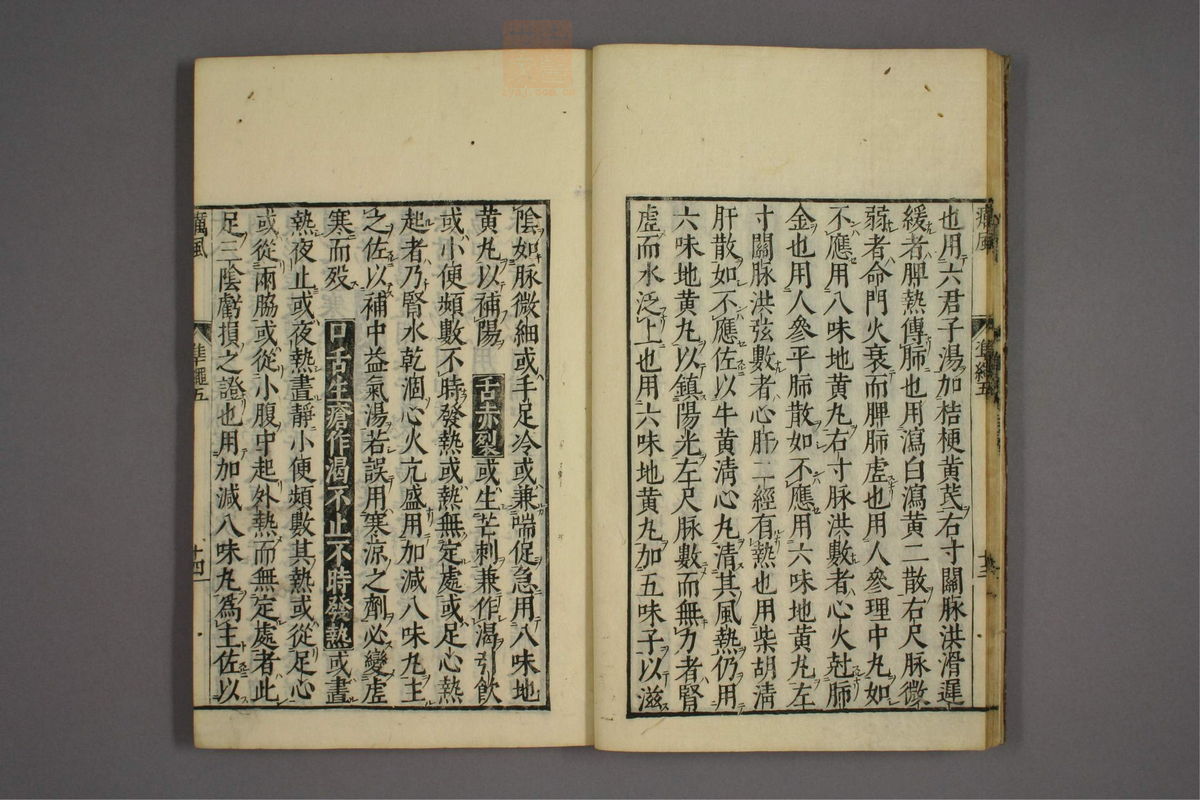 也用六君子湯加桔梗黃芪右寸關脉洪滑遲
緩者脾熱傳肺也用瀉白瀉黃二散右尺脉微
弱者命門火衰而脾肺虛也用人參理中丸如
不應用八味地黃丸右寸脉洪數者心火尅肺
金也用人參平肺散如不應用六味地黃丸左
寸關脉洪弦數者心肝二經有熱也用柴胡淸
肝散如不應佐以牛黃淸心丸清其風熱仍用
六味地黃丸以鎮陽光左尺脉數而無力者腎
虛而水泛上也用六味地黃丸加五味子以滋
陰如脉微細或手足冷或兼喘促急用八味地
黃丸以補陽 舌赤裂或生芒刺兼作渴引飲
或小便頻數不時發熱或熱無定處或足心熱
起者乃腎水乾涸心火亢盛用加減八味丸主
之佐以補中益氣湯若誤用寒涼之劑必變虛
寒而殁 口舌生瘡作渴不止不時發熱或晝
熱夜止或夜熱晝靜小便頻數其熱或從足心
或從兩脇或從小腹中起外熱而無定處者此
足三陰虧損之證也用加減八味丸爲主佐以
癘風 準繩五 十四